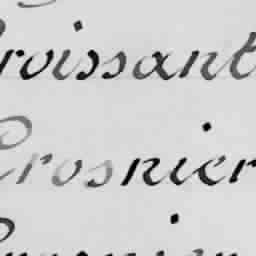 Croissant
Crosnier